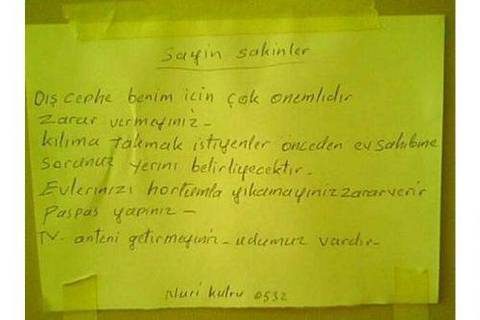 Sayin sakinler
Dış cephe benim için çok önemlıdır
Zarar vermeyiniz-
Kılıma takmak istiyenler önceden ev sahibine
Sorunuz yerını belirliyecektir-
Evlerinizi hortumla yıkamayınız zararverir
Paspas yapınız -
TV- anteni getirmeyiniz- udumuz vardır-
Nuri Kutru 0532